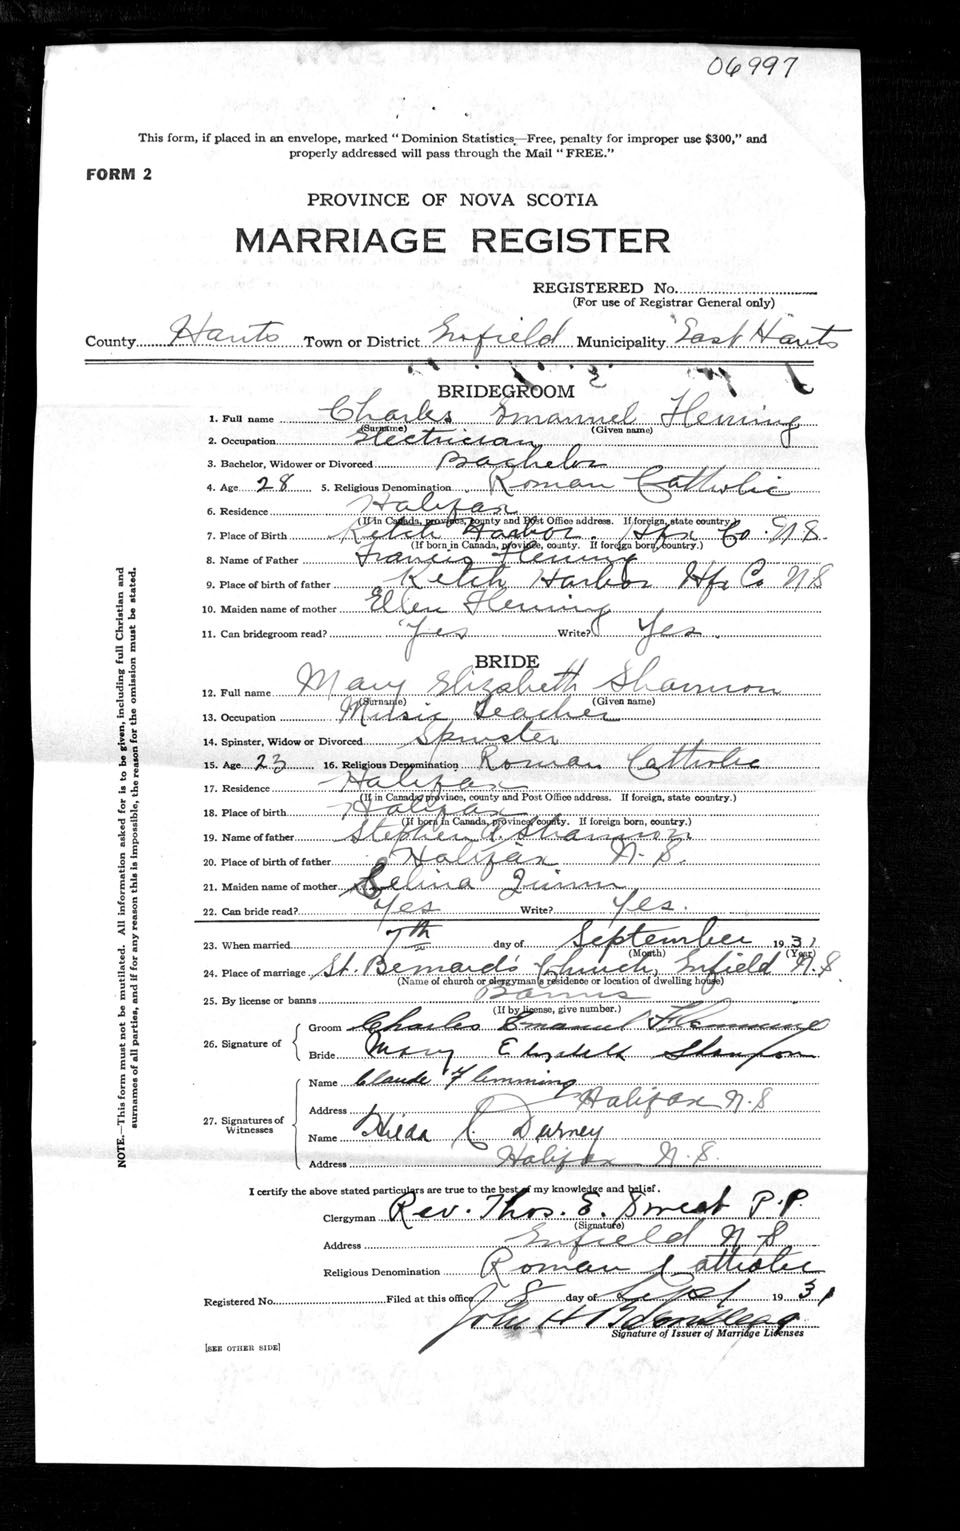 06997
This form, if placed in an envelope, marked "Dominion Statistics—Free, penalty for improper use $300," and
properly addressed will pass through the Mail "FREE."
FORM 2
PROVINCE OF NOVA SCOTIA
MARRIAGE REGISTER
REGISTERED No.
(For use of Registrar General only)
County Hants Town or District Enfield Municipality East Hants
BRIDEGROOM
1. Full name Charles Emanuel Fleming
(Surname) (Given name)
2. Occupation Electrician
3. Bachelor, Widower or Divorced Bachelor
4. Age 28 5. Religious Denomination Roman Catholic
6. Residence Halifax
(If in Canada, province, county and Post Office address. If foreign, state country.)
7. Place of Birth Ketch Harbor. Hfx Co. N.S.
(If born in Canada, province, county. If foreign born, country.)
8. Name of Father Francis Fleming
9. Place of birth of father Ketch Harbor Hfx Co NS
10. Maiden name of mother Ellen Fleming
11. Can bridegroom read? Yes Write? Yes
BRIDE
12. Full name Mary Elizabeth Shannon
(Surname) (Given name)
13. Occupation Music Teacher
14. Spinster, Widow or Divorced Spinster
15. Age 23 16. Religious Denomination Roman Catholic
17. Residence Halifax
(If in Canada, province, county and Post Office address. If foreign, state country.)
18. Place of birth Halifax
(If born in Canada, province, county. If foreign born, country.)
19. Name of father Stephen A. Shannon
20. Place of birth of father Halifax N.S.
21. Maiden name of mother Selina Quinn
22. Can bride read? Yes Write? Yes.
23. When married 7th day of September 1931
(Month) (Year)
24. Place of marriage St. Bernard's Church, Enfield N.S.
(Name of church or clergyman's residence or location of dwelling house)
25. By license or banns Banns
(If by license, give number.)
26. Signature of Groom Charles Emanuel Flemming
Bride Mary Elizabeth Shannon
27. Signatures of Witnesses Name Claude Flemming
Address Halifax N.S
Name Hilda Durney
Address Halifax N.S.
I certify the above stated particulars are true to the best of my knowledge and belief.
Clergyman Rev. Thos. E. Sweet P.P.
(Signature)
Address Enfield N S
Religious Denomination Roman Catholic
Registered No. Filed at this office 8 day of Sept 1931
John H
Signature of Issuer of Marriage Licenses
[SEE OTHER SIDE]
NOTE.—This form must not be mutilated. All information asked for is to be given, including full Christian and
surnames of all parties, and if for any reason this is impossible, the reason for the omission must be stated.